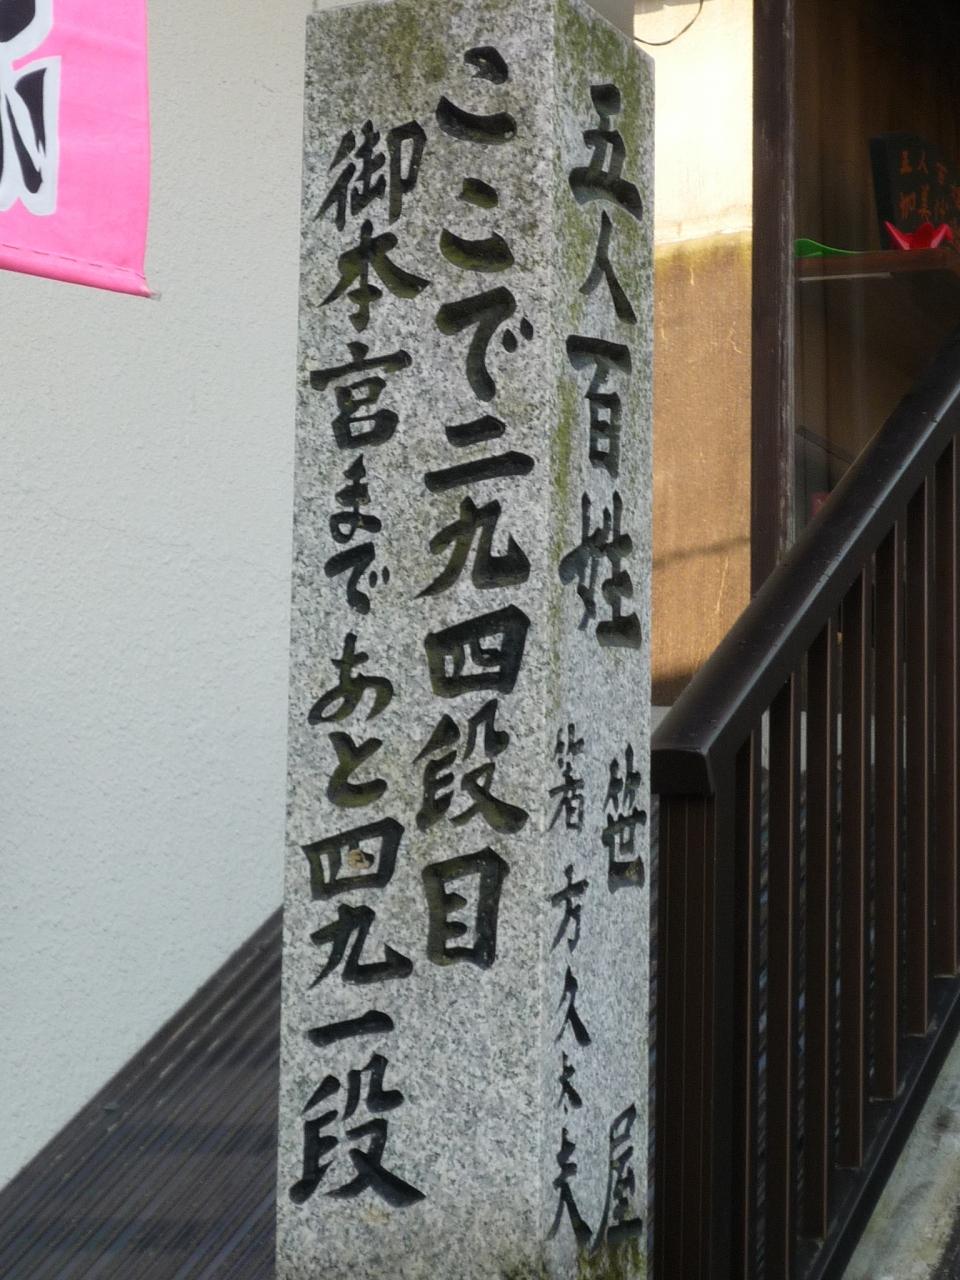 ここで二九四段目
御本宮まであと四九一段
五人百姓 笹屋
箸方久太夫
五人百